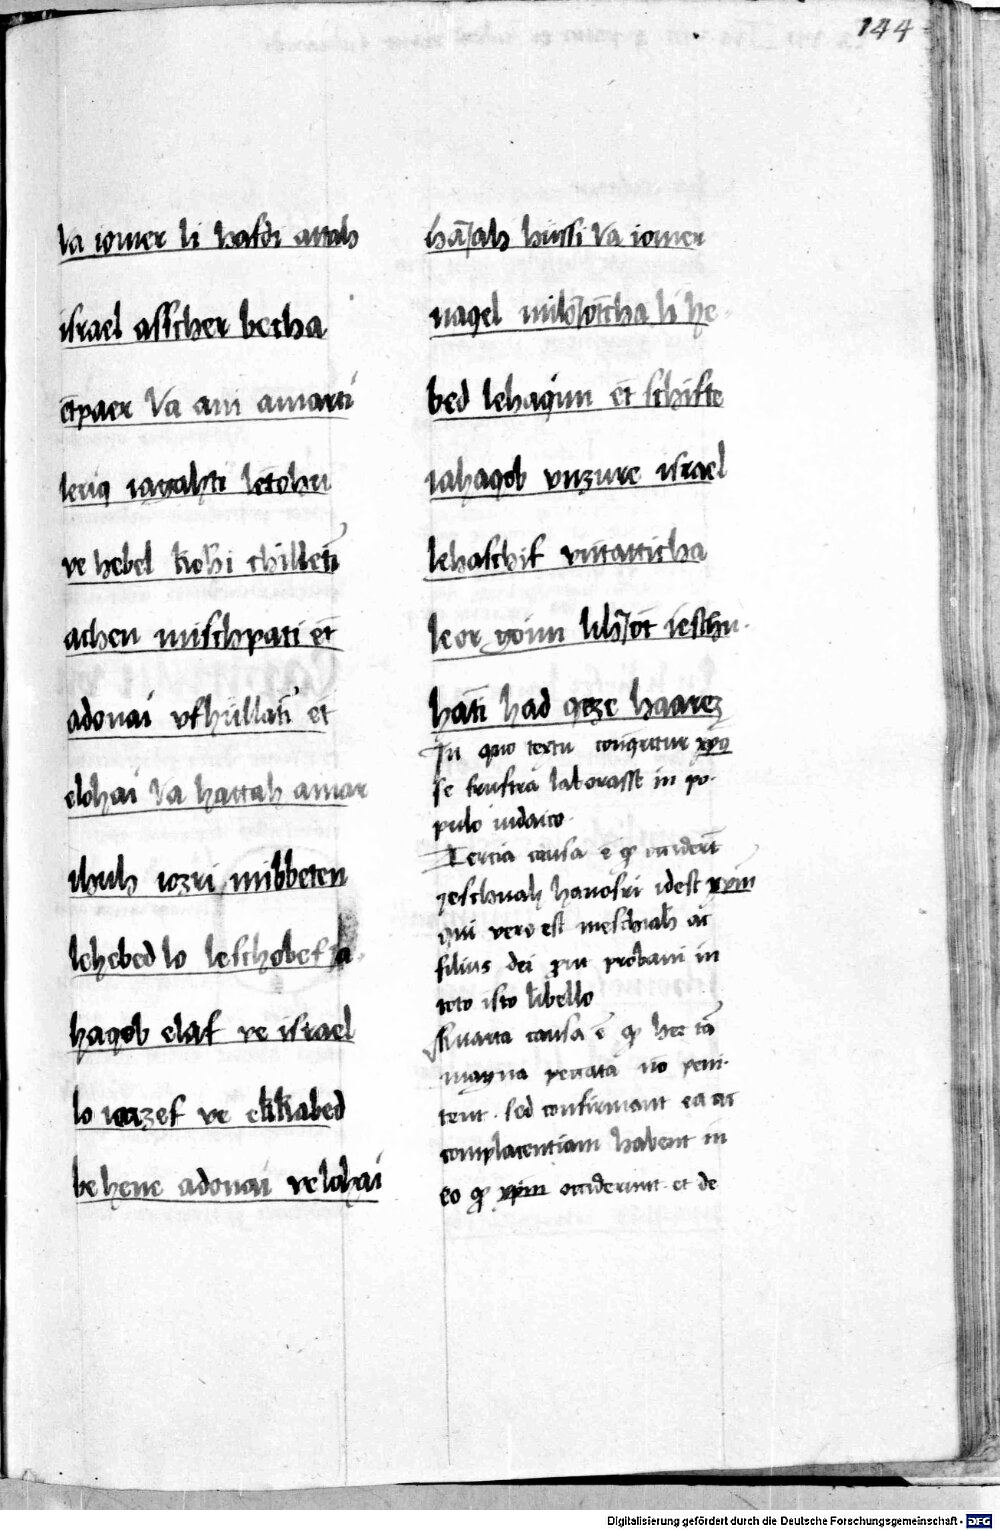 144
Va iomer li hafdi attah
israel asscher becha
etpaer Va ani amarti
leriq iagahti letohu
ve hebel kohi chilleti
achen mischpati et
adonai ufhullati et
elohai Va hattah amar
ihuh iozri mibbeten
lehebed lo leschobef Ja
haqob elaf ve israel
lo iaazef ve ekkabed
be hene adonai velohai
haJah hussi Va iomer
naqel mihJotcha li he
bed lehaqim et schifte
iahaqob unzure israel
lehaschif untatticha
le or goim lihJot ieschu
hati had qeze haarez
In quo textu conqueritur xpus
se frustra laborasse in po
pulo iudaico
Tercia causa e q occiderut
ieschuah hanosri idest xpm
qui vere est meschiah ac
filius dei put probaui in
toto isto libello
Quarta causa e q hec ta
magna peccata no peni
tent sed confirmant ea ac
complacentiam habent in
eo q xpm occiderunt et de
Digitalisierung gefördert durch die Deutsche Forschungsgemeinschaft - DFG